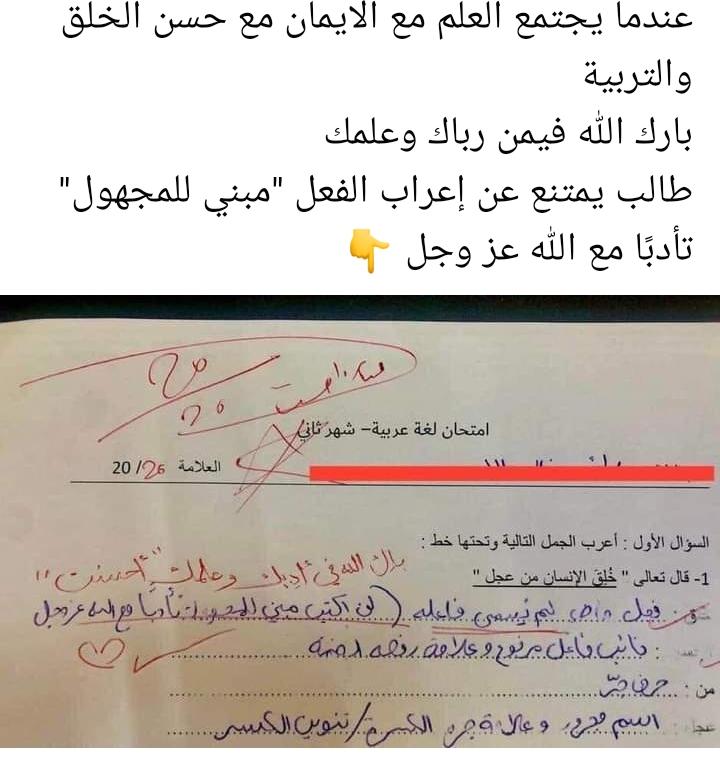 عندما يجتمع العلم مع الايمان مع حسن الخلق
والتربية
بارك الله فيمن رباك وعلمك
طالب يمتنع عن إعراب الفعل "مبني للمجهول"
تأدبًا مع الله عز وجل 👇
20
20
امتحان لغة عربية– شهر ثاني
العلامة 20/20
السؤال الأول : أعرب الجمل التالية وتحتها خط :
بارك الله في أدبك وعلمك "أحسنت"
1- قال تعالى " خُلِقَ الإنسان من عجل "
خلق: فعل ماض لم يُسمى فاعله (لن اكتب مبني للمجهول تأدبا مع الله عز وجل
: نائب فاعل مرفوع وعلامة رفعه الضمة
من : حرف جرّ
عجل: اسم مجرور وعلامة جره الكسرة/تنوين الكسر